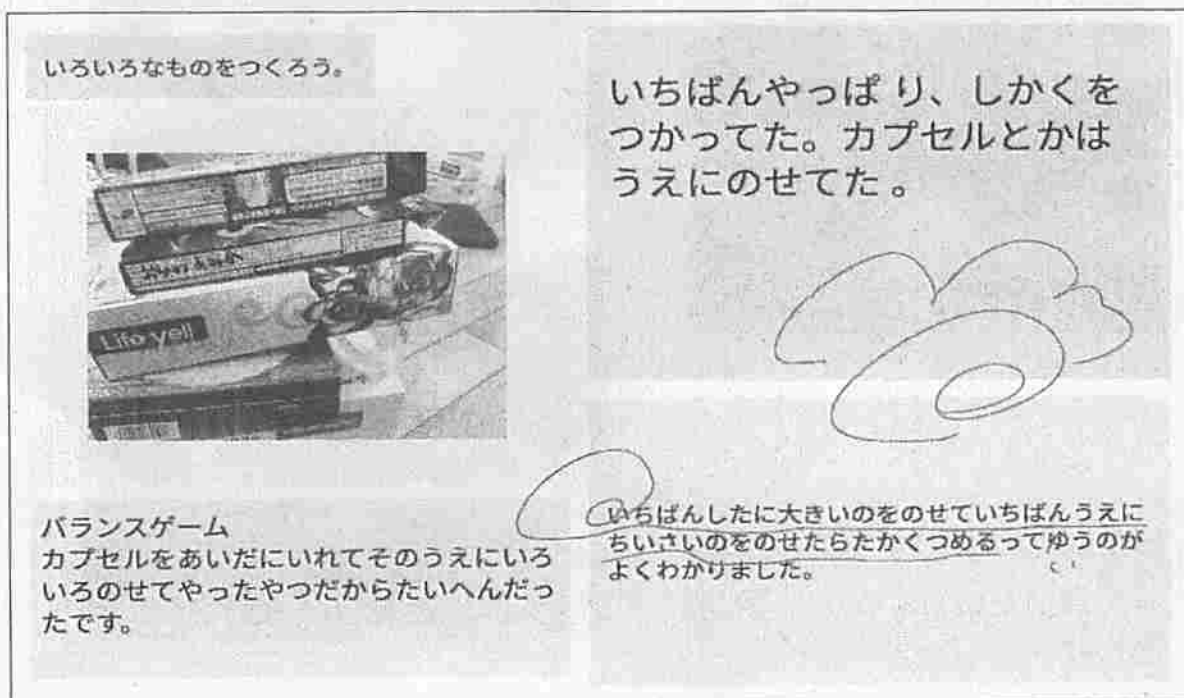 いろいろなものをつくろう。
Life yell
バランスゲーム
カプセルをあいだにいれてそのうえにいろ
いろのせてやったやつだからたいへんだっ
たです。
いちばんやっぱり、しかくを
つかってた。カプセルとかは
うえにのせてた。
いちばんしたに大きいのをのせていちばんうえに
ちいさいのをのせたらたかくつめるってゆうのが
い
よくわかりました。